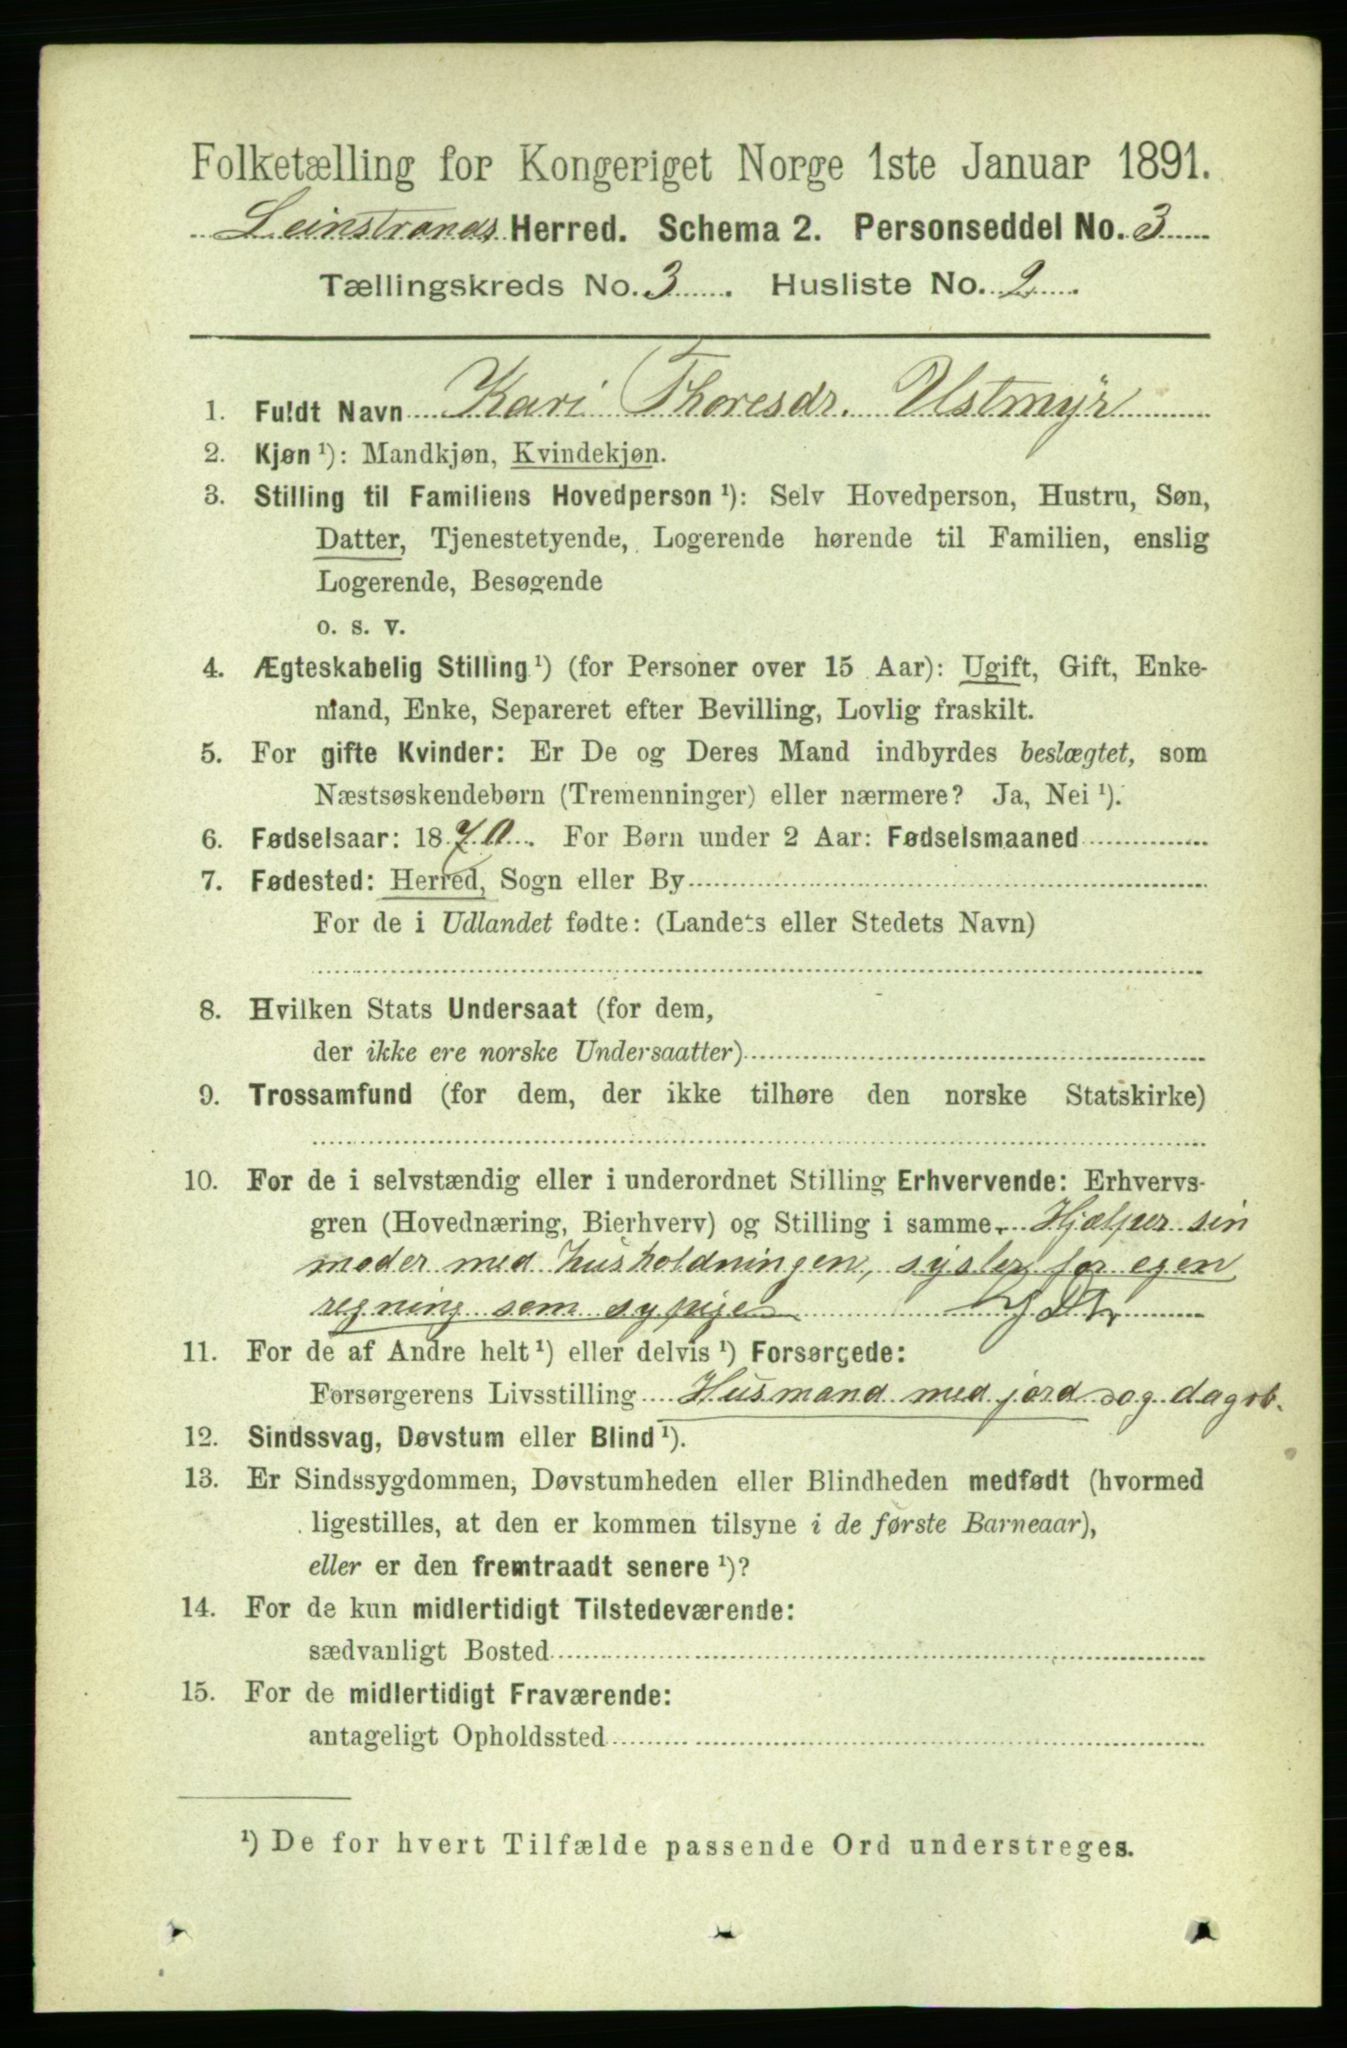 Folketælling for Kongeriget Norge 1ste Januar 1891.
Leinstrands Herred. Schema 2. Personseddel No. 3
Tællingskreds No. 3. Husliste No. 2.
1. Fuldt Navn Kari Thoresdr. Ustmyr
2. Kjøn ¹): Mandkjøn, Kvindekjøn.
3. Stilling til Familiens Hovedperson ¹): Selv Hovedperson, Hustru, Søn,
Datter, Tjenestetyende, Logerende hørende til Familien, enslig
Logerende, Besøgende
o. s. v.
4. Ægteskabelig Stilling ¹) (for Personer over 15 Aar): Ugift, Gift, Enke-
mand, Enke, Separeret efter Bevilling, Lovlig fraskilt.
5. For gifte Kvinder: Er De og Deres Mand indbyrdes beslægtet, som
Næstsøskendebørn (Tremenninger) eller nærmere? Ja, Nei ¹).
6. Fødselsaar: 1870. For Børn under 2 Aar: Fødselsmaaned
7. Fødested: Herred, Sogn eller By
For de i Udlandet fødte: (Landets eller Stedets Navn)
8. Hvilken Stats Undersaat (for dem,
der ikke ere norske Undersaatter)
9. Trossamfund (for dem, der ikke tilhøre den norske Statskirke)
10. For de i selvstændig eller i underordnet Stilling Erhvervende: Erhvervs-
gren (Hovednæring, Bierhverv) og Stilling i samme. Hjælper sin
moder med husholdningen, sysler for egen
regning som sypige
11. For de af Andre helt ¹) eller delvis ¹) Forsørgede:
Forsørgerens Livsstilling Husmand med jord og dagarb.
12. Sindssvag, Døvstum eller Blind ¹).
13. Er Sindssygdommen, Døvstumheden eller Blindheden medfødt (hvormed
ligestilles, at den er kommen tilsyne i de første Barneaar),
eller er den fremtraadt senere ¹)?
14. For de kun midlertidigt Tilstedeværende:
sædvanligt Bosted
15. For de midlertidigt Fraværende:
antageligt Opholdssted
¹) De for hvert Tilfælde passende Ord understreges.